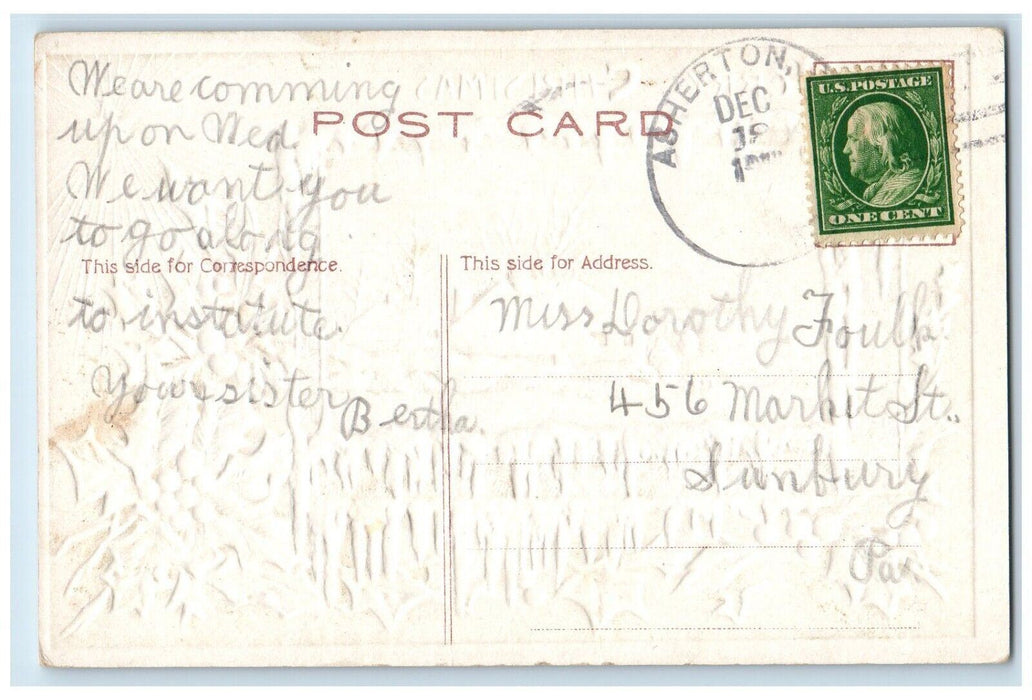 We are comming
up on Wed
We want you
to go along
to institute.
Your sister
Bertha.
POST CARD
This side for Correspondence.
This side for Address.
ASHERTON,
DEC
U.S. POSTAGE
ONE CENT
Miss Dorothy Foulk
456 Market St.,
Sunbury
Pa.